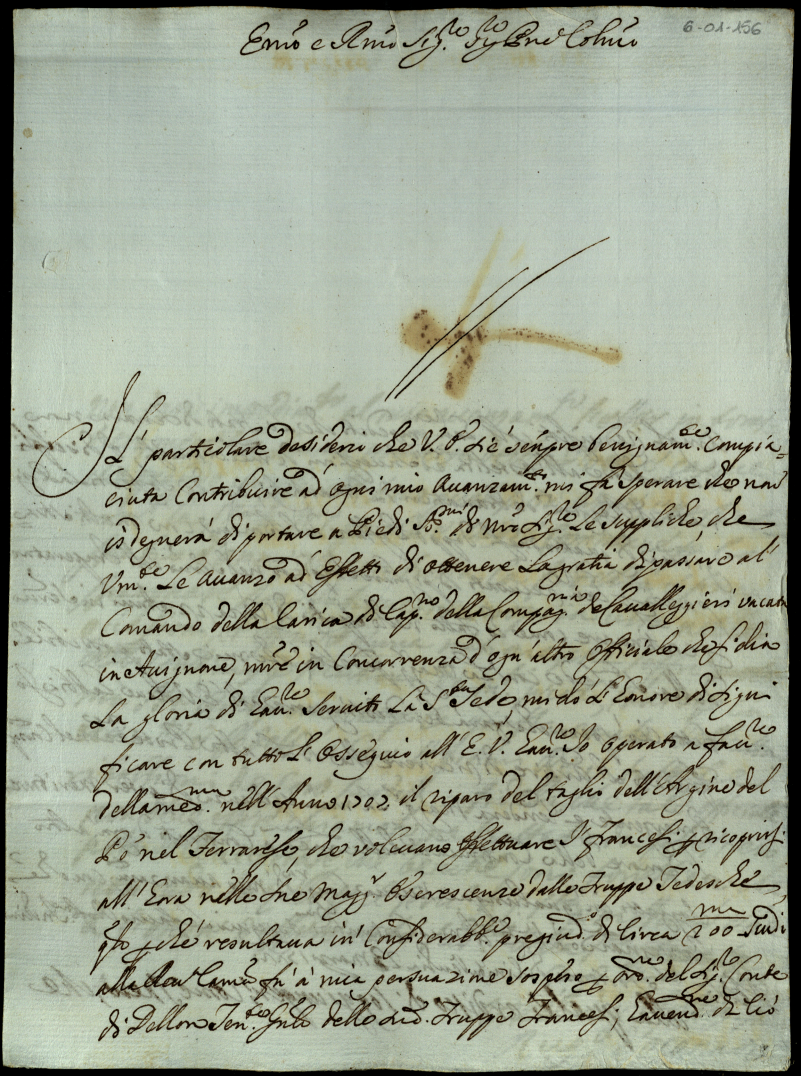 6-01-156
Emo e Rmo Sig.re Sig.re Pne Colmo
Il particolare desiderio che V. E. si è sempre benignam.te compia=
ciuta Contribuire ad ogni mio Auanzam.to mi fa sperare che non
isdegnerà di portare a Piedi SS.mi di Nro Sig.re Le suppliche, che
Vm.te Le auanzo ad Effetti di ottenere La gratia di passare al'
Comando della Carica di Cap.no della Compag.nia de Cauallegieri vacata
in Auignone, mre in Concorrenza d'ogn'altro Officiale che si dia
La gloria di hauer Seruito La S.ta Sede, mi dò L'honore di signi
ficare con tutto L'Ossequio all'E. V. hauer Io operato a fau.re
della med.ma nell'Anno 1707. il riparo del taglio dell'Argine del
Pò nel Ferrarese, che voleuano effettuare I Francesi p ricoprirsi
all'hora nelle sue magg.i escrescenze dalle Truppe Tedesche
p che resultaua in Considerabb.le pregiud.o di Circa 200 Scudi
alla Reu Cama fù à mia persuazione sospeso p ord.ne del Sig.re Conte
di Dellon Ten.te Gnle delle sud. Truppe Francesi, hauend.ne di Ciò